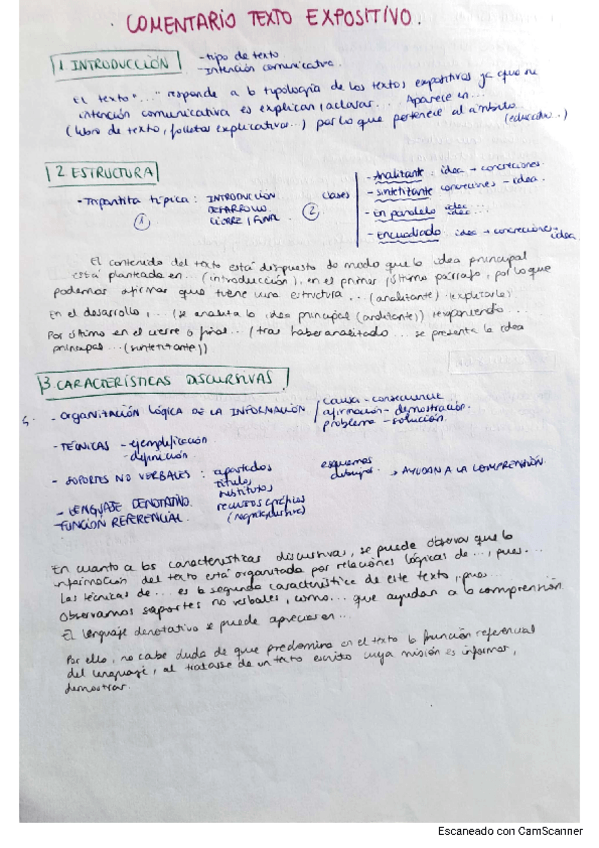 . COMENTARIO TEXTO EXPOSITIVO.
1. INTRODUCCIÓN
- tipo de texto
- intención comunicativa.
El texto "..." responde a la tipología de los textos expositivos ya que su
intención comunicativa es explicar/aclarar.... Aparece en...
(libro de texto, folletos explicativos...) por lo que pertenece al ámbito
(educativo..)
2 ESTRUCTURA
- Tripartita típica: INTRODUCCIÓN
DESARROLLO
CIERRE/FINAL
①
clases
②
- Analizante: idea → concreciones.
- sintetizante concreciones - idea.
- en paralelo idea idea...
- Encuadrado idea → concreciones → idea
El contenido del texto está dispuesto de modo que la idea principal
está planteada en... (introducción), en el primer/último párrafo, por lo que
podemos afirmar que tiene una estructura... (analizante) (explicarla)
En el desarrollo,... (se analiza la idea principal (analizante)) (exponiendo...
Por último en el cierre o final... (tras haber analizado... se presenta la idea
principal...(sintetizante))
3. CARACTERÍSTICAS DISCURSIVAS
- Organización lógica DE LA INFORMACIÓN
causa - consecuencia
afirmación - demostración.
problema - solución.
- TÉCNICAS - ejemplificación
- definición.
- SOPORTES NO VERBALES: apartados
títulos,
recursos gráficos
(negrita)
esquemas
dibujos.
→ AYUDAN A LA COMPRENSIÓN
- LENGUAJE DENOTATIVO.
- FUNCIÓN REFERENCIAL.
En cuanto a las características discursivas, se puede observar que la
información del texto está organizada por relaciones lógicas de..., pues...
Las técnicas de... es la segunda característica de este texto, pues...
Observamos soportes no verbales, como... que ayudan a la comprensión
El lenguaje denotativo se puede apreciar en...
Por ello, no cabe duda de que predomina en el texto la función referencial
del lenguaje, al tratarse de un texto escrito cuya misión es informar,
demostrar.
Escaneado con CamScanner